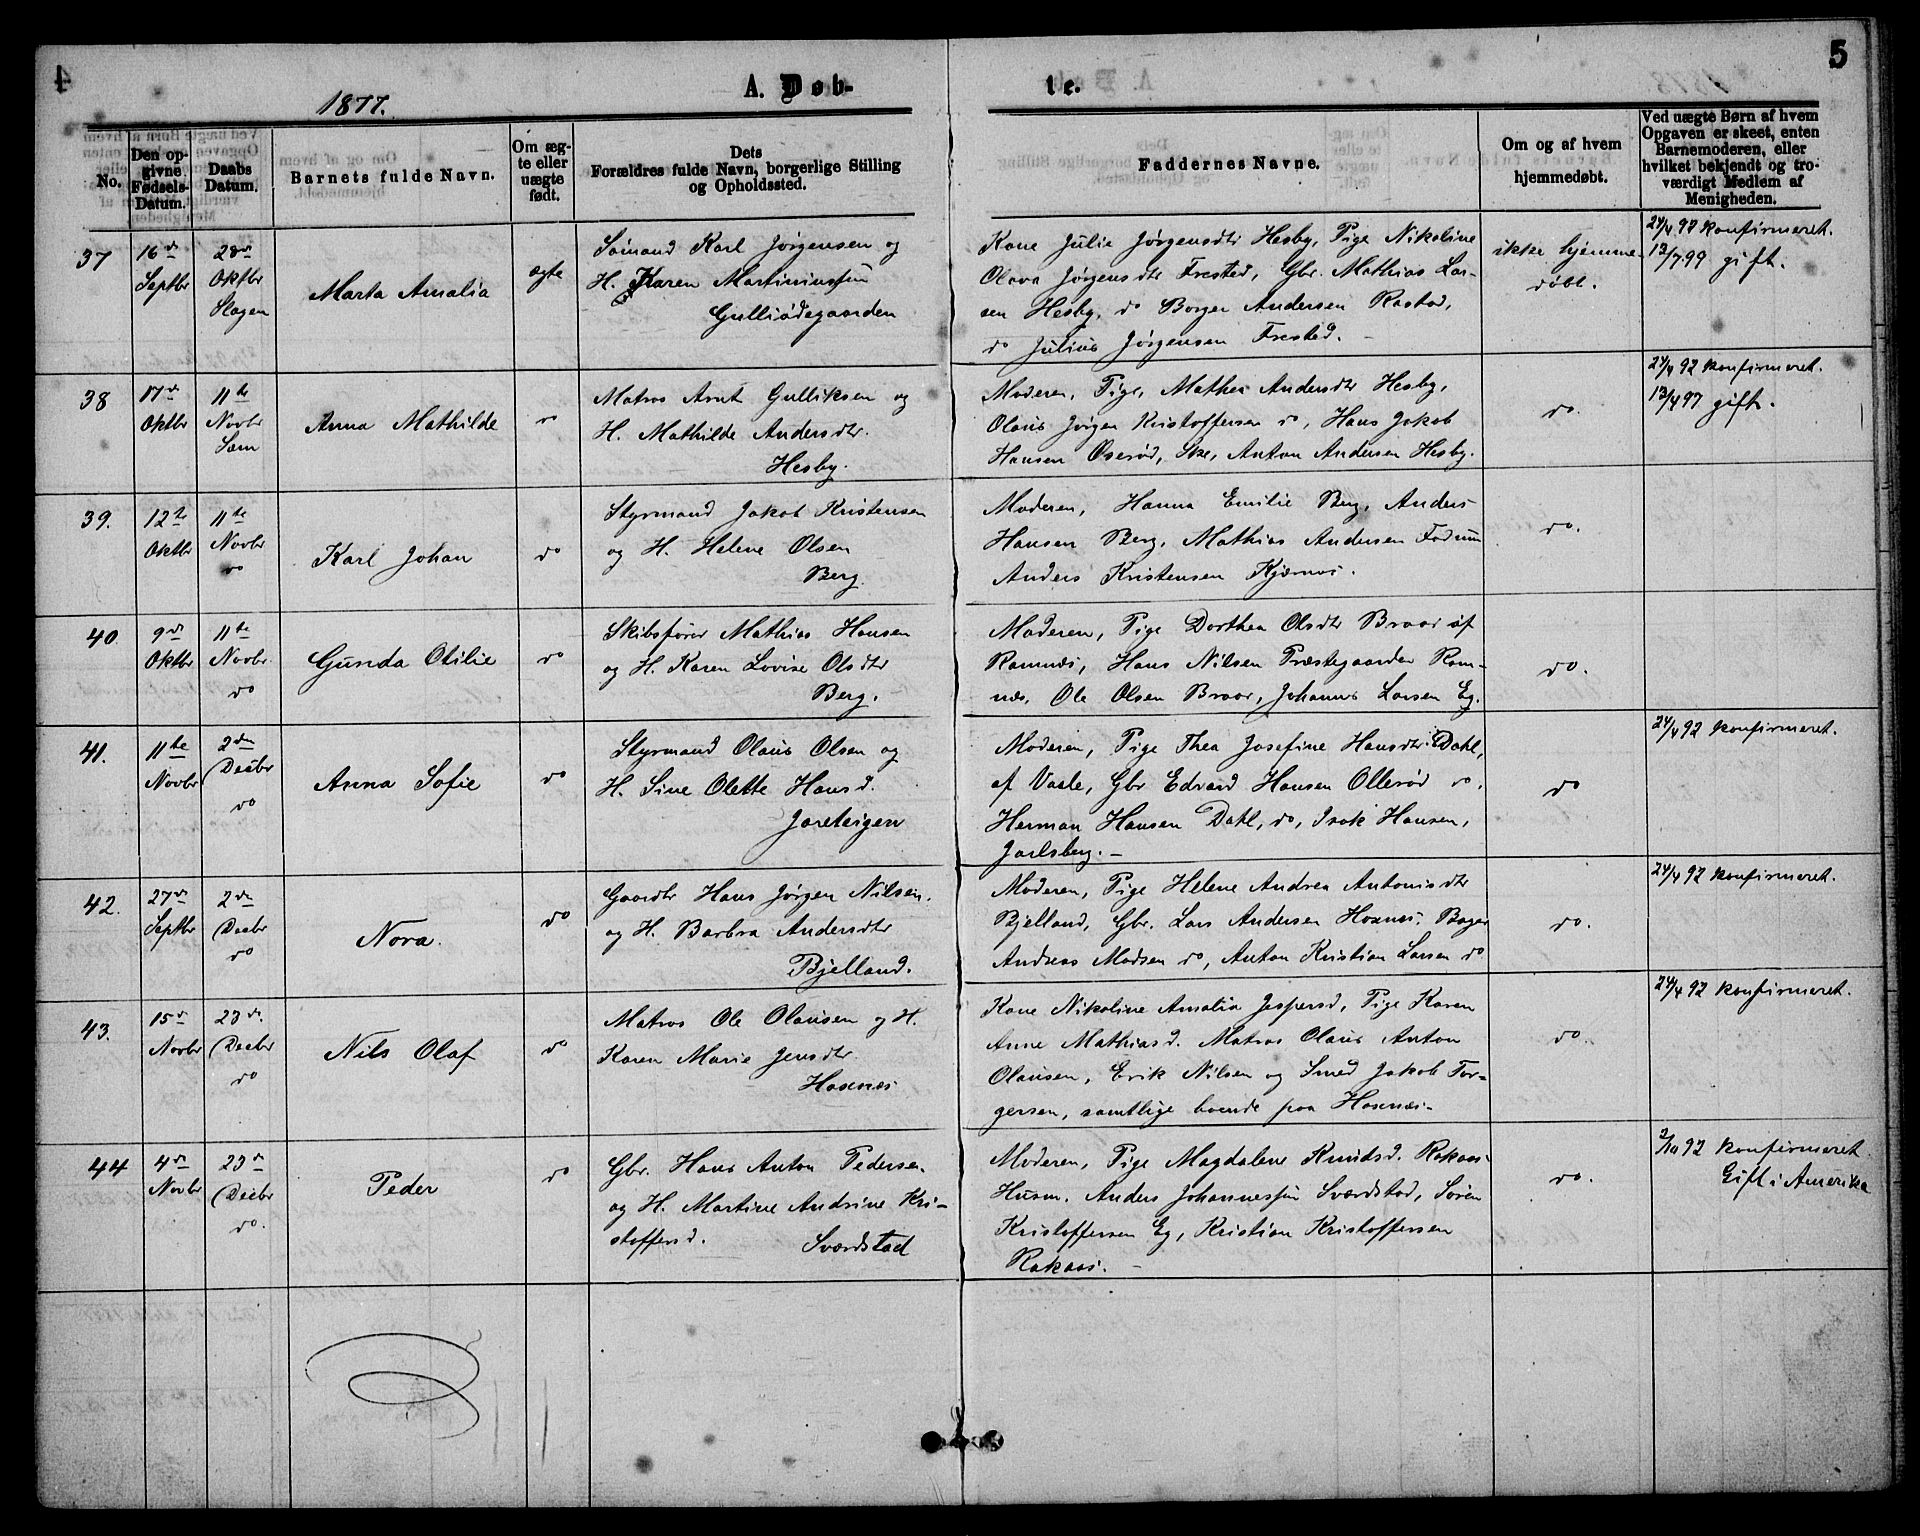 4
5
1877.
A. Døb-
te.
No.
Den op-
givne
Fødsels-
Datum.
Daabs
Datum.
Barnets fulde Navn.
Om æg-
te eller
uægte
født.
Dets
Forældres fulde Navn, borgerlige Stilling
og Opholdssted.
Faddernes Navne.
Om og af hvem
hjemmedøbt.
Ved uægte Børn af hvem
Opgaven er skeet, enten
Barnemoderen, eller
hvilket bekjendt og tro-
værdigt Medlem af
Menigheden.
37
16de
Septbr
28de
Oktbr
Slagen
Marta Amalia
ægte
Sømand Karl Jørgensen og
H. Karen Martiniussøn
Gulliødegaarden
Kone Julie Jørgensdtr Hesby, Pige Nikoline
Olava Jørgensdtr Frested, Gbr. Mathias Lar-
sen Hesby, do Borger Andersen Rastad,
do Julius Jørgensen Frested. -
ikke hjemme-
døbt.
24/4 92 konfirmeret.
13/7 99 gift.
38
17de
Oktbr
11te
Novbr
Sem
Anna Mathilde
do
Matros Arnt Gulliksen og
H. Mathilde Andersdtr.
Hesby.
Moderen, Pige, Mathea Andersdtr Hesby,
Olaus Jørgen Kristoffersen do, Hans Jakob
Hansen Oserød, Ske, Anton Andersen Hesby.
do.
24/4 92 konfirmeret.
13/4 97 gift.
39.
12te
Oktbr
11te
Novbr
do
Karl Johan
do
Styrmand Jakob Kristensen
og H. Helene Olsen
Berg.
Moderen, Hanna Emilie Berg, Anders
Hansen Berg, Mathias Andersen Fodum
Anders Kristensen Kjærnes.
do.
40.
9de
Oktbr
11te
Novbr.
do
Gunda Otilie
do
Skibsfører Mathias Hansen
og H. Karen Lovise Olsdtr
Berg.
Moderen, Pige Dorthea Olsdtr Braar af
Ramnes, Hans Nilsen Præstegaarden Ram-
nes, Ole Olsen Braar, Johannes Larsen Eg.
do.
41.
11te
Novbr
2den
Decbr
do
Anna Sofie
do
Styrmand Olaus Olsen og
H. Sine Olette Hansd.
Jareteigen
Moderen, Pige Thea Josefine Hansdtr. Dahl,
af Vaale, Gbr Edvard Hansen Ollerød do.
Herman Hansen Dahl, do, Isak Hansen,
Jarlsberg. -
do
24/4 92 konfirmeret.
42.
27de
Septbr
2den
Decbr
do
Nora.
do
Gaardbr Hans Jørgen Nilsen.
og H. Barbra Andersdtr
Bjelland.
Moderen, Pige Helene Andrea Antonisdtr
Bjelland, Gbr. Lars Andersen Hoxnes. Bager
Andreas Madsen do, Anton Kristian Larsen do
do.
24/4 92 konfirmeret.
43.
15de
Novbr
23de.
Decbr
do
Nils Olaf
do
Matros Ole Olausen og H.
Karen Marie Jensdtr.
Hoxnes
Kone Nikoline Amalia Jespersd, Pige Karen
Anne Mathiasd. Matros Olaus Anton
Olausen, Erik Nilsen og Smed Jakob Tor-
gersen, samtlige boende paa Hoxnes. -
do.
24/4 92 konfirmeret.
44
4de
Novbr
23de
Decbr
do.
Peder
do
Gbr. Hans Anton Pedersen
og H. Martine Andrine Kri-
stoffersd.
Sværdstad
Moderen, Pige Magdalene Knudsd. Rakaas.
Husm. Anders Johannessøn Sværdstad, Søren
Kristoffersen Eg, Kristian Kristoffersen
Rakaas. -
do.
2/10 92 konfirmeret
Gift i Amerika